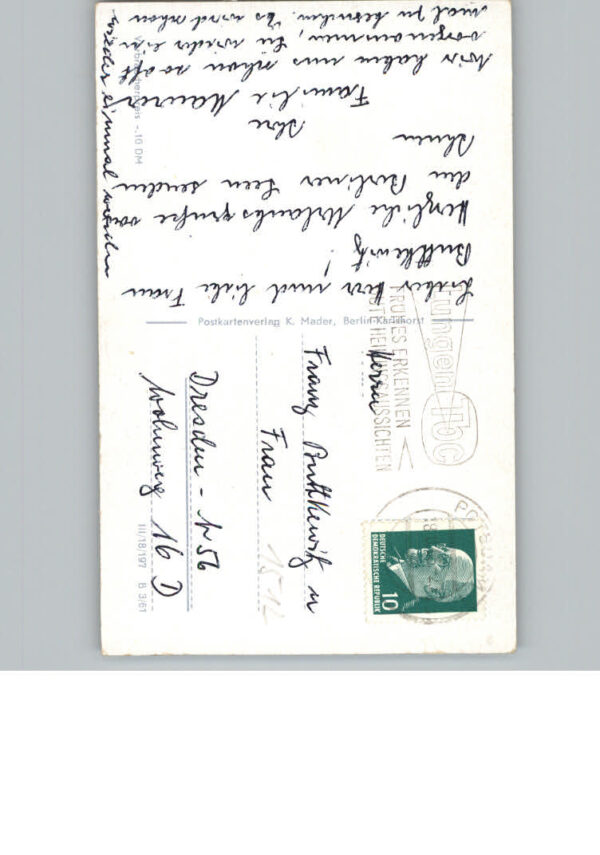 Lieber Herr und liebe Frau
Buttkewitz!
Herzliche Urlaubsgrüße von
den Berliner Seen senden
Ihnen
Ihre
Familie Maurer
Wir haben uns schon so oft
vorgenommen, Sie wieder ein-
mal zu besuchen. Es wird schon
wieder einmal werden
Verbraucherpreis -.10 DM
Postkartenverlag K. Mader, Berlin-Karlshorst
Lungen Tbc
FRÜHES ERKENNEN
HEILUNGSAUSSICHTEN
POTSDAM
DEUTSCHE
DEMOKRATISCHE REPUBLIK
10
Herrn
Franz Buttkewitz u
Frau
Dresden - N 56
Wohnweg 16 D
III/18/197 B 3/61